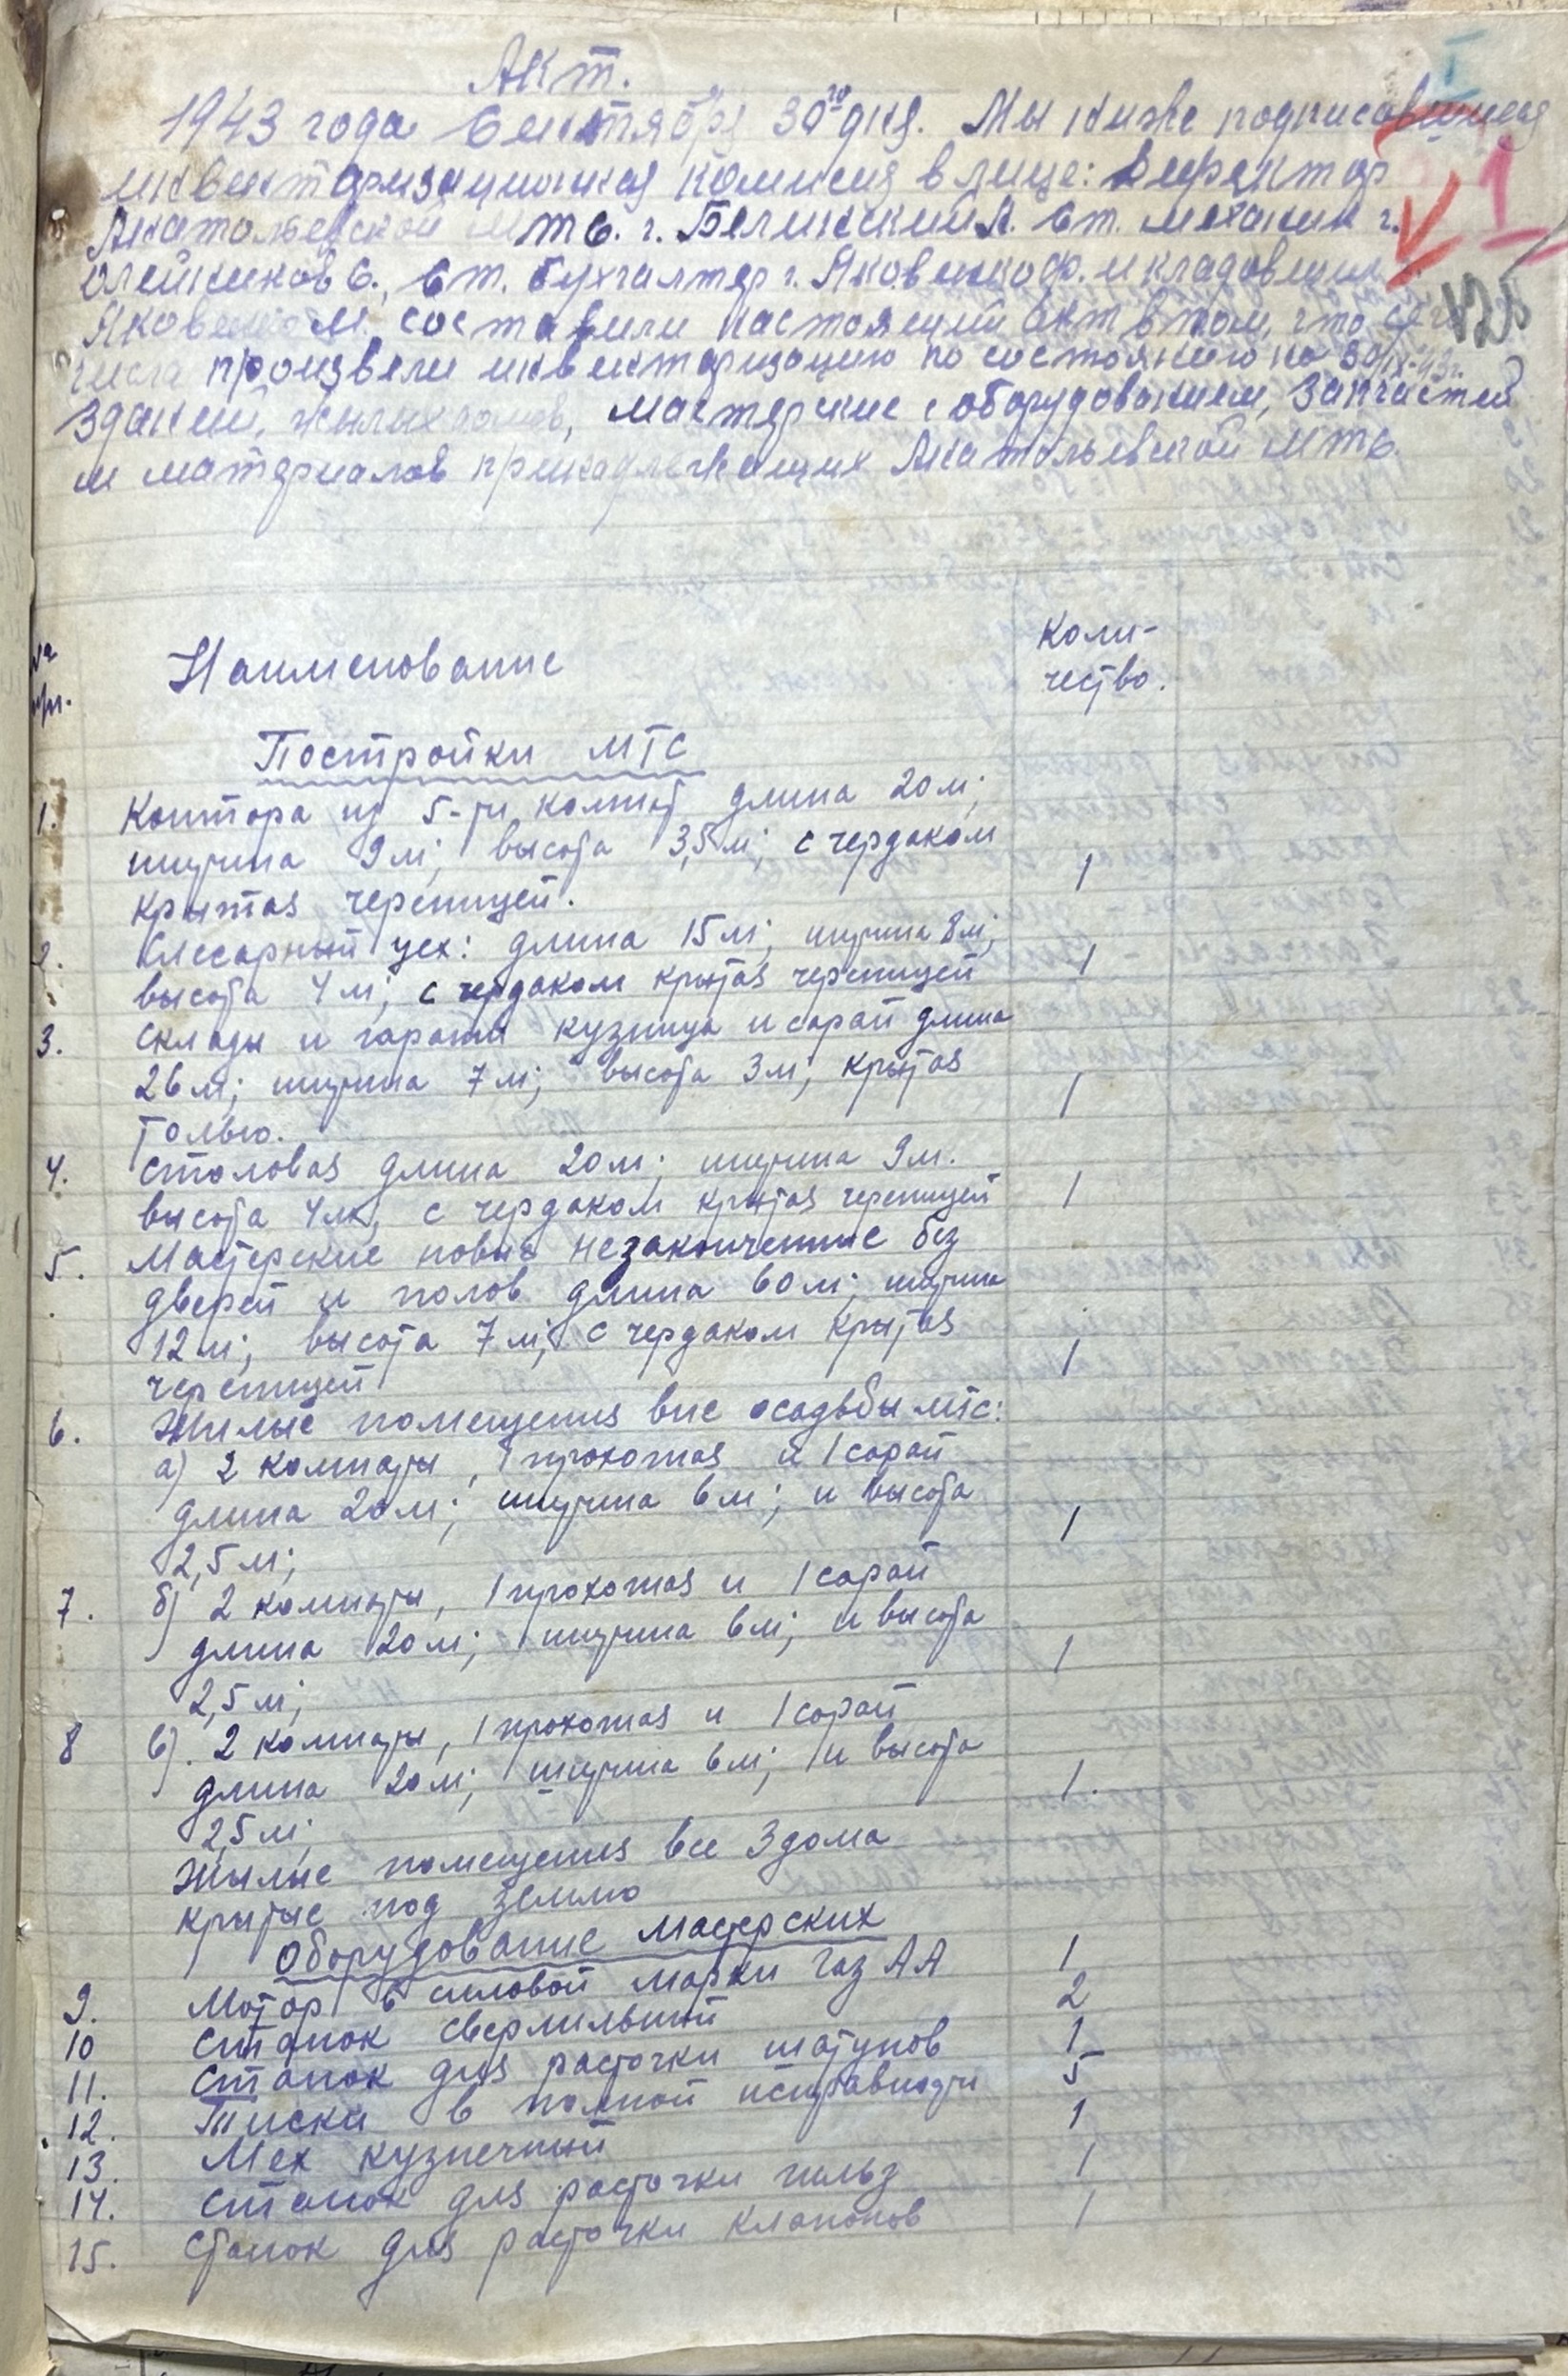 I
Акт.
1943 года Сентября 30го дня. Мы ниже подписавшиеся
1
инвентаризационная комисия в лице: Директор
Анатольевской МТС. г. Белинский А. Ст. механик г.
Олейников С., Ст. бухгалтер г. Яковенко Ф. и кладовщик
Яковенко М. составили настоящий акт в том, что сего
числа произвели инвентаризацию по состоянию на 30/IX-43г.
зданий, жилых домов, мастерские с оборудованием, запчастей
и материалов принадлежащих Анатольевской МТС.
№ Наименование Коли-
пп. чество.
Постройки МТС
1. Контора из 5-ти комнат длина 20м;
ширина 9м; высота 3,5м; с чердаком
крытая черепицей. 1
2. Слесарный цех: длина 15м; ширина 8м;
высота 4м; с чердаком крытая черепицей 1
3. Склады и гаражи кузница и сарай длина
26м; ширина 7м; высота 3м; крытая
толью. 1
4. Столовая длина 20м; ширина 9м.
высота 4м, с чердаком крытая черепицей 1
5. Мастерские новые незаконченные без
дверей и полов длина 60м; ширина
12м; высота 7м; с чердаком крытая
черепицей 1
6. Жилые помещения вне осадьбы МТС:
а) 2 комнаты, 1 прохотная и 1 сарай
длина 20м; ширина 6м; и высота
2,5м; 1
7. б) 2 комнаты, 1 прохотная и 1 сарай
длина 20м; ширина 6м; и высота
2,5м; 1
8 в). 2 комнаты, 1 прохотная и 1 сарай
длина 20м; ширина 6м; и высота
2,5м; 1.
Жилые помещения все 3 дома
крытые под землю
Оборудование мастерских
9. Мотор силовой марки Газ АА 1
10 Станок сверлильный 2
11. Станок для расточки шатунов 1
12. Тиски в полной исправности 5
13. Мех кузнечный 1
14. Станок для расточки гильз 1
15. Станок для расточки клапонов 1